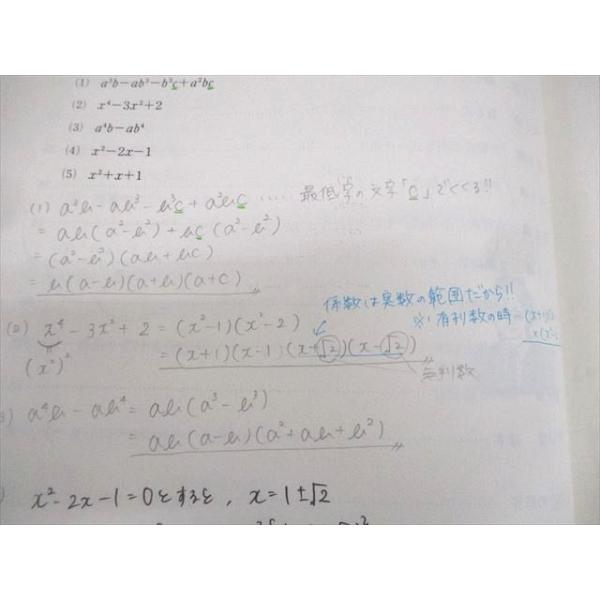 (1) a³b−ab³−b³c+a²bc
(2) x⁴−3x²+2
(3) a⁴b−ab⁴
(4) x²−2x−1
(5) x²+x+1
(1) a³b − ab³ − b³c + a²bc …. 最低字の文字「c」でくくる!!
= ab(a²−b²) + bc(a²−b²)
= (a²−b²)(ab+bc)
= b(a−b)(a+b)(a+c)
係数は実数の範囲だから!!
※有利数の時
(2) x⁴ − 3x² + 2 = (x²−1)(x²−2)
(x²)²
= (x+1)(x−1)(x+√2)(x−√2)
無利数
) a⁴b − ab⁴ = ab(a³−b³)
= ab(a−b)(a²+ab+b²)
) x²−2x−1=0とすると, x=1±√2